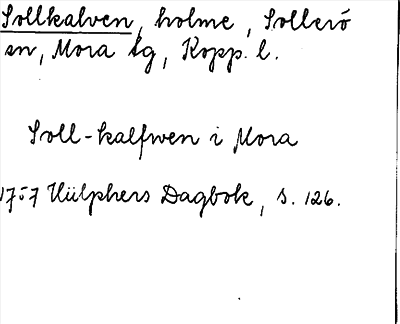 Sollkalven, holme, Sollerö
sn, Mora tg, Kopp. l.
Soll-kalfwen i Mora
1757 Hülphers Dagbok, s. 126.